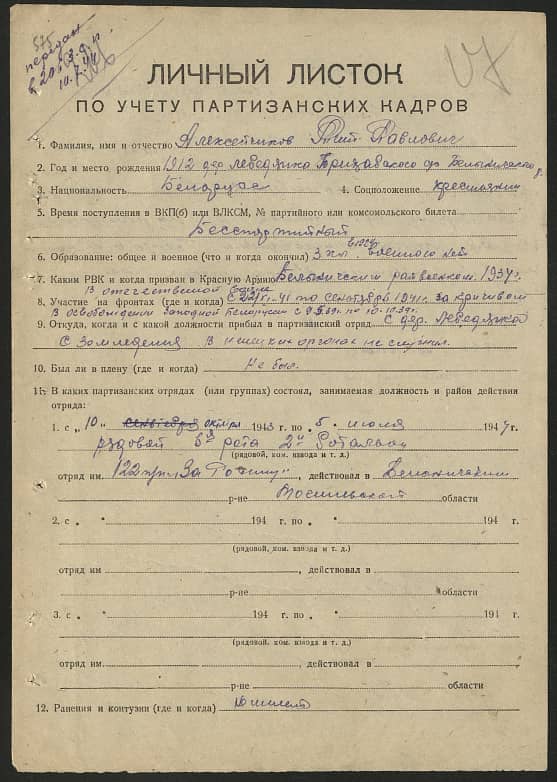 575
передан
в 206 з.д.п.
10.7.44
ЛИЧНЫЙ ЛИСТОК
ПО УЧЕТУ ПАРТИЗАНСКИХ КАДРОВ
1. Фамилия, имя и отчество Алексейчиков Павлович
2. Год и место рождения 1912 дер. Лебедянка Белыничского р.
3. Национальность Беларус 4. Соцположение крестьянин
5. Время поступления в ВКП(б) или ВЛКСМ, № партийного или комсомольского билета
Беспартийный
6. Образование: общее и военное (что и когда окончил) 3 кл. военного нет
7. Каким РВК и когда призван в Красную Армию Белыничским райвоенком. 1937 г.
В отечественной войне
8. Участие на фронтах (где и когда) по сентябрь 1941 г. за
В освобождении Западной Белоруссии с 9.39 г. по 10.39 г.
9. Откуда, когда и с какой должности прибыл в партизанский отряд С дер. Лебедянка
С земледелия В немецких органах не служил.
10. Был ли в плену (где и когда) Не был.
11. В каких партизанских отрядах (или группах) состоял, занимаемая должность и район действия
отряда:
1. с „10„ сентября октября 1943 г. по „5„ июля 1944 г.
рядовой 5й рота 2й батальон
(рядовой, ком. взвода и т. д.)
отряд им. 122 прп За Родину, действовал в Белыничским
р-не Могилевской области
2. с „ " 194 г. по „ " 194 г.
(рядовой, ком. взвода и т. д.)
отряд им , действовал в
р-не области
3. с „ " 194 г. по „ " 194 г.
(рядовой, ком. взвода и т. д.)
отряд им. , действовал в
р-не области
12. Ранения и контузии (где и когда) не имеет